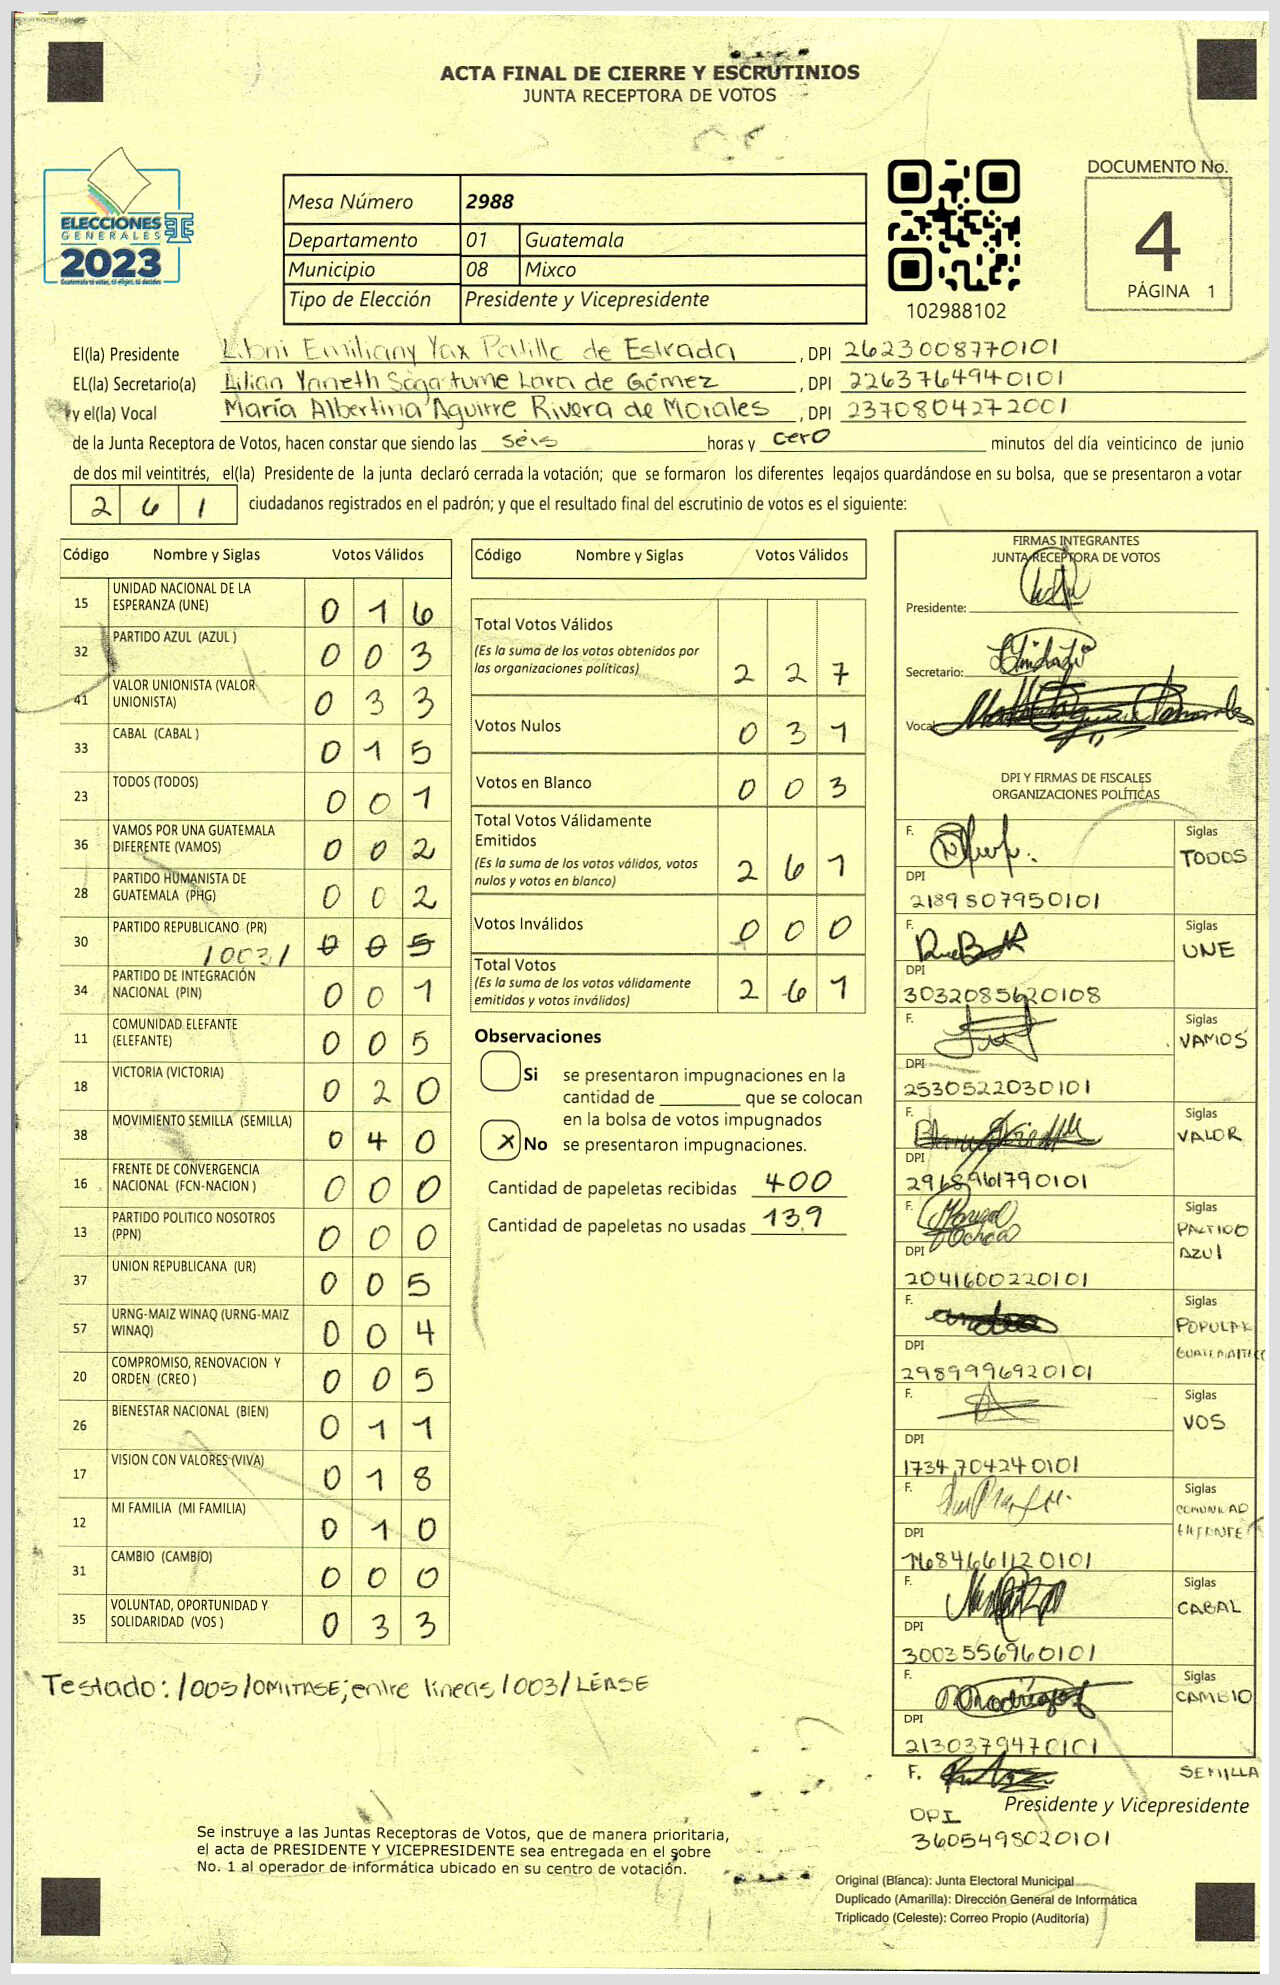 ACTA FINAL DE CIERRE Y ESCRUTINIOS
JUNTA RECEPTORA DE VOTOS
ELECCIONES
GENERALES
2023
Guatemala tú votas, tú eliges, tú decides
Mesa Número 2988
Departamento 01 Guatemala
Municipio 08 Mixco
Tipo de Elección Presidente y Vicepresidente
102988102
DOCUMENTO No.
4
PÁGINA 1
El(la) Presidente Libni Emiliany Yax Padilla de Estrada, DPI 2623008770101
EL(la) Secretario(a) Lilian Yaneth Sagastume Lara de Gómez, DPI 2263764940101
y el(la) Vocal María Albertina Aguirre Rivera de Morales, DPI 2370804272001
de la Junta Receptora de Votos, hacen constar que siendo las seis horas y cero minutos del día veinticinco de junio
de dos mil veintitrés, el(la) Presidente de la junta declaró cerrada la votación; que se formaron los diferentes legajos guardándose en su bolsa, que se presentaron a votar
261 ciudadanos registrados en el padrón; y que el resultado final del escrutinio de votos es el siguiente:
Código Nombre y Siglas Votos Válidos
15 UNIDAD NACIONAL DE LA ESPERANZA (UNE) 016
32 PARTIDO AZUL (AZUL ) 003
41 VALOR UNIONISTA (VALOR UNIONISTA) 033
33 CABAL (CABAL ) 015
23 TODOS (TODOS) 001
36 VAMOS POR UNA GUATEMALA DIFERENTE (VAMOS) 002
28 PARTIDO HUMANISTA DE GUATEMALA (PHG) 002
30 PARTIDO REPUBLICANO (PR) /003/ 005
34 PARTIDO DE INTEGRACIÓN NACIONAL (PIN) 001
11 COMUNIDAD ELEFANTE (ELEFANTE) 005
18 VICTORIA (VICTORIA) 020
38 MOVIMIENTO SEMILLA (SEMILLA) 040
16 FRENTE DE CONVERGENCIA NACIONAL (FCN-NACION ) 000
13 PARTIDO POLITICO NOSOTROS (PPN) 000
37 UNION REPUBLICANA (UR) 005
57 URNG-MAIZ WINAQ (URNG-MAIZ WINAQ) 004
20 COMPROMISO, RENOVACION Y ORDEN (CREO ) 005
26 BIENESTAR NACIONAL (BIEN) 011
17 VISION CON VALORES (VIVA) 018
12 MI FAMILIA (MI FAMILIA) 010
31 CAMBIO (CAMBIO) 000
35 VOLUNTAD, OPORTUNIDAD Y SOLIDARIDAD (VOS ) 033
Testado: /005/OMITASE; entre lineas /003/ LÉASE
Código Nombre y Siglas Votos Válidos
Total Votos Válidos
(Es la suma de los votos obtenidos por las organizaciones políticas) 227
Votos Nulos 031
Votos en Blanco 003
Total Votos Válidamente Emitidos
(Es la suma de los votos válidos, votos nulos y votos en blanco) 261
Votos Inválidos 000
Total Votos
(Es la suma de los votos válidamente emitidos y votos inválidos) 261
Observaciones
Si se presentaron impugnaciones en la
cantidad de ________ que se colocan
en la bolsa de votos impugnados
X No se presentaron impugnaciones.
Cantidad de papeletas recibidas 400
Cantidad de papeletas no usadas 139
FIRMAS INTEGRANTES
JUNTA RECEPTORA DE VOTOS
Presidente:
Secretario:
Vocal
DPI Y FIRMAS DE FISCALES
ORGANIZACIONES POLÍTICAS
F. Siglas TODOS
DPI 2189807950101
F. Siglas UNE
DPI 3032085620108
F. Siglas VAMOS
DPI 2530522030101
F. Siglas VALOR
DPI 2968961790101
F. Marisol Ochoa Siglas PARTIDO AZUL
DPI 2041600220101
F. Siglas POPULAR
DPI 2989996920101
F. Siglas VOS
DPI 1734704240101
F. Siglas COMUNIDAD ELEFANTE
DPI 1684661120101
F. Siglas CABAL
DPI 3003556960101
F. Siglas CAMBIO
DPI 2130379470101
F. SEMILLA
DPI
3605498020101
Presidente y Vicepresidente
Se instruye a las Juntas Receptoras de Votos, que de manera prioritaria,
el acta de PRESIDENTE Y VICEPRESIDENTE sea entregada en el sobre
No. 1 al operador de informática ubicado en su centro de votación.
Original (Blanca): Junta Electoral Municipal
Duplicado (Amarilla): Dirección General de Informática
Triplicado (Celeste): Correo Propio (Auditoría)